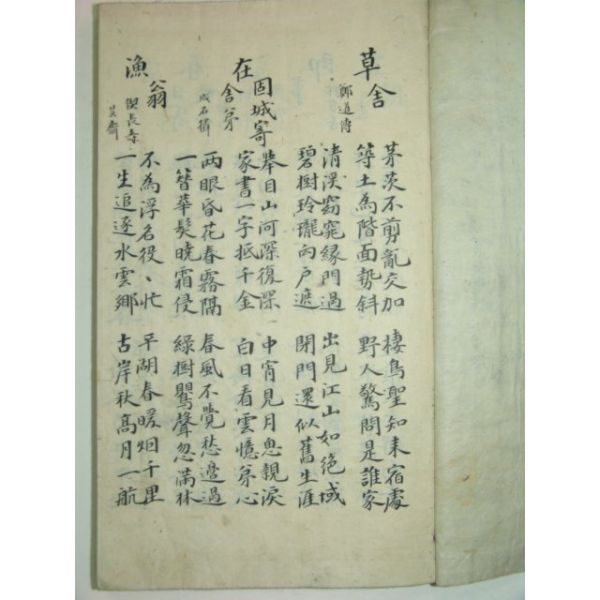 草舍
鄭道傳
茅茨不剪亂交加
等土為階面勢斜
棲鳥聖知来宿處
野人驚問是誰家
清溪窈窕緣門過
碧樹玲瓏向戶遮
出見江山如絶域
閉門還似舊生涯
在固城寄舍弟
成石璘
舉目山河深復深
家書一字抵千金
中宵見月思親淚
白日看雲憶弟心
兩眼昏花春霧隔
一簪華髮曉霜侵
春風不覺愁邊過
綠樹鶯聲忽滿林
漁翁
偰長壽
芸齋
不為浮名役、忙
一生追逐水雲鄉
平湖春暖烟千里
古岸秋高月一航